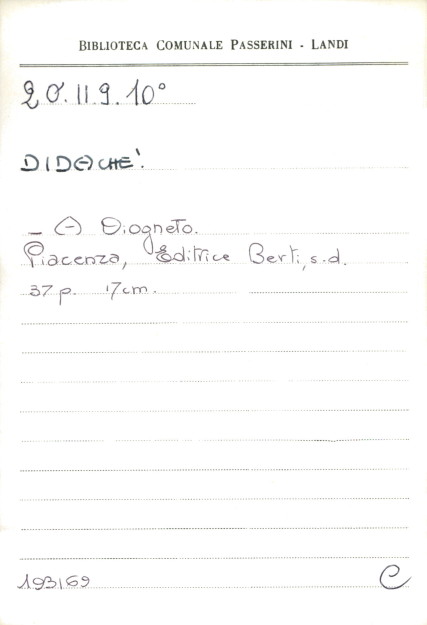 BIBLIOTECA COMUNALE PASSERINI - LANDI
2O.II9.10°
DIDACHE'.
– A Diogneto.
Piacenza, Editrice Berti, s.d.
37 p. 17cm.
193169
C